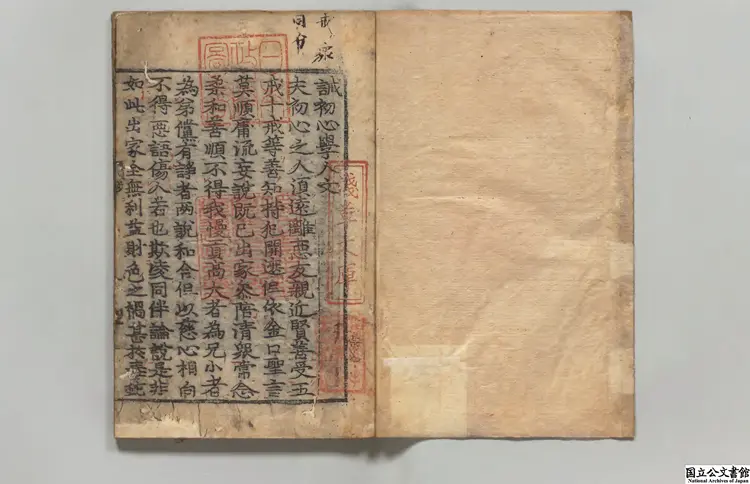 誡初心學人文
夫初心之人湏遠離惡友親近賢善受五
戒十戒等善知持犯開遮但依金口聖言
莫順庸流妄說旣已出家叅陪清衆常念
柔和善順不得我慢貢高大者為兄小者
為弟儻有諍者兩說和合但以慈心相向
不得惡語傷人若也欺凌同伴論說是非
如此出家全無利益財色之禍甚扵毒蛇
淺草文庫
国立公文書館
National Archives of Japan